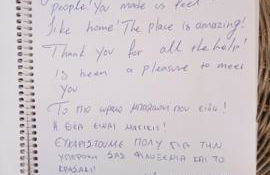 people! You made us feel
like home! The place is amazing!
Thank you for all the help!
Is been a pleasure to meet
you
Το πιο ωραιο μπαλκονι που ειδα!
Η ΘΕΑ ΕΙΝΑΙ ΜΑΓΙΚΗ!
ΕΥΧΑΡΙΣΤΟΥΜΕ ΠΟΛΥ ΓΙΑ ΤΗΝ
ΥΠΕΡΟΧΗ ΣΑΣ ΦΙΛΟΞΕΝΙΑ ΚΑΙ ΤΟ
ΚΡΑΣΑΚΙ!